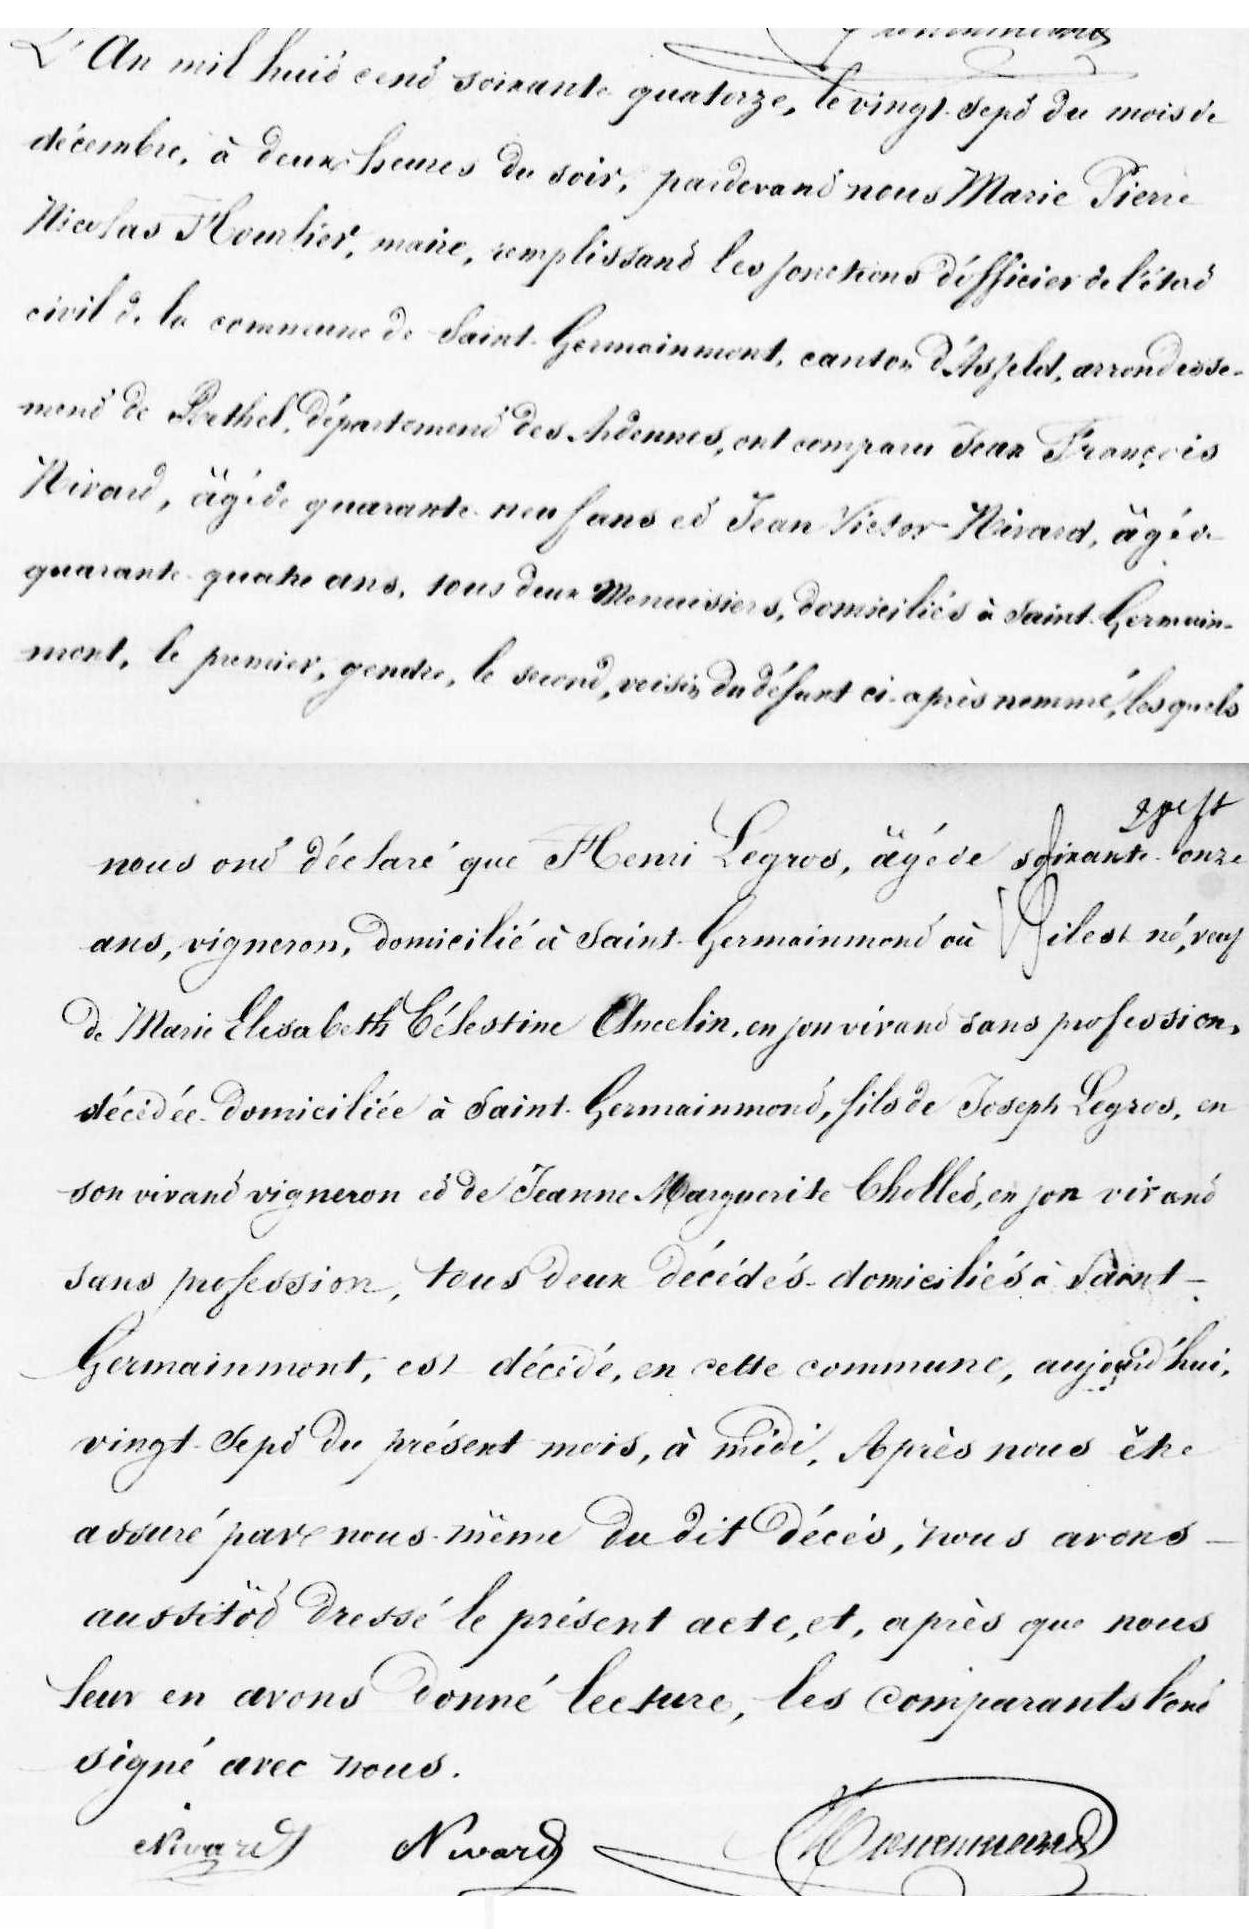 L'An mil huit cent soixante quatorze, le vingt-sept du mois de
décembre, à deux heures du soir, pardevant nous Marie Pierre
Nicolas Hourlier, maire, remplissant les fonctions d'officier de l'état
civil de la commune de Saint-Germainmont, canton d'Asfeld, arrondisse-
ment de Rethel, département des Ardennes, ont comparu Jean François
Nivard, âgé de quarante-neuf ans et Jean Victor Nivard, âgé de
quarante-quatre ans, tous deux Menuisiers, domiciliés à Saint-Germain-
mont, le premier, gendre, le second, voisin du défunt ci-après nommé, lesquels
nous ont déclaré que Henri Legros, âgé de soixante-onze
ans, vigneron, domicilié à Saint-Germainmont où il est né, veuf
de Marie Elisabeth Célestine Ancelin, en son vivant sans profession,
décédée domiciliée à Saint-Germainmont, fils de Joseph Legros, en
son vivant vigneron et de Jeanne Marguerite Chollet, en son vivant
sans profession, tous deux décédés domiciliés à Saint-
Germainmont, est décédé, en cette commune, aujourd'hui,
vingt-sept du présent mois, à midi. Après nous être
assuré par nous-même du dit décès, nous avons
aussitôt dressé le présent acte, et, après que nous
leur en avons donné lecture, les comparants l'ont
signé avec nous.
Nivard Nivard